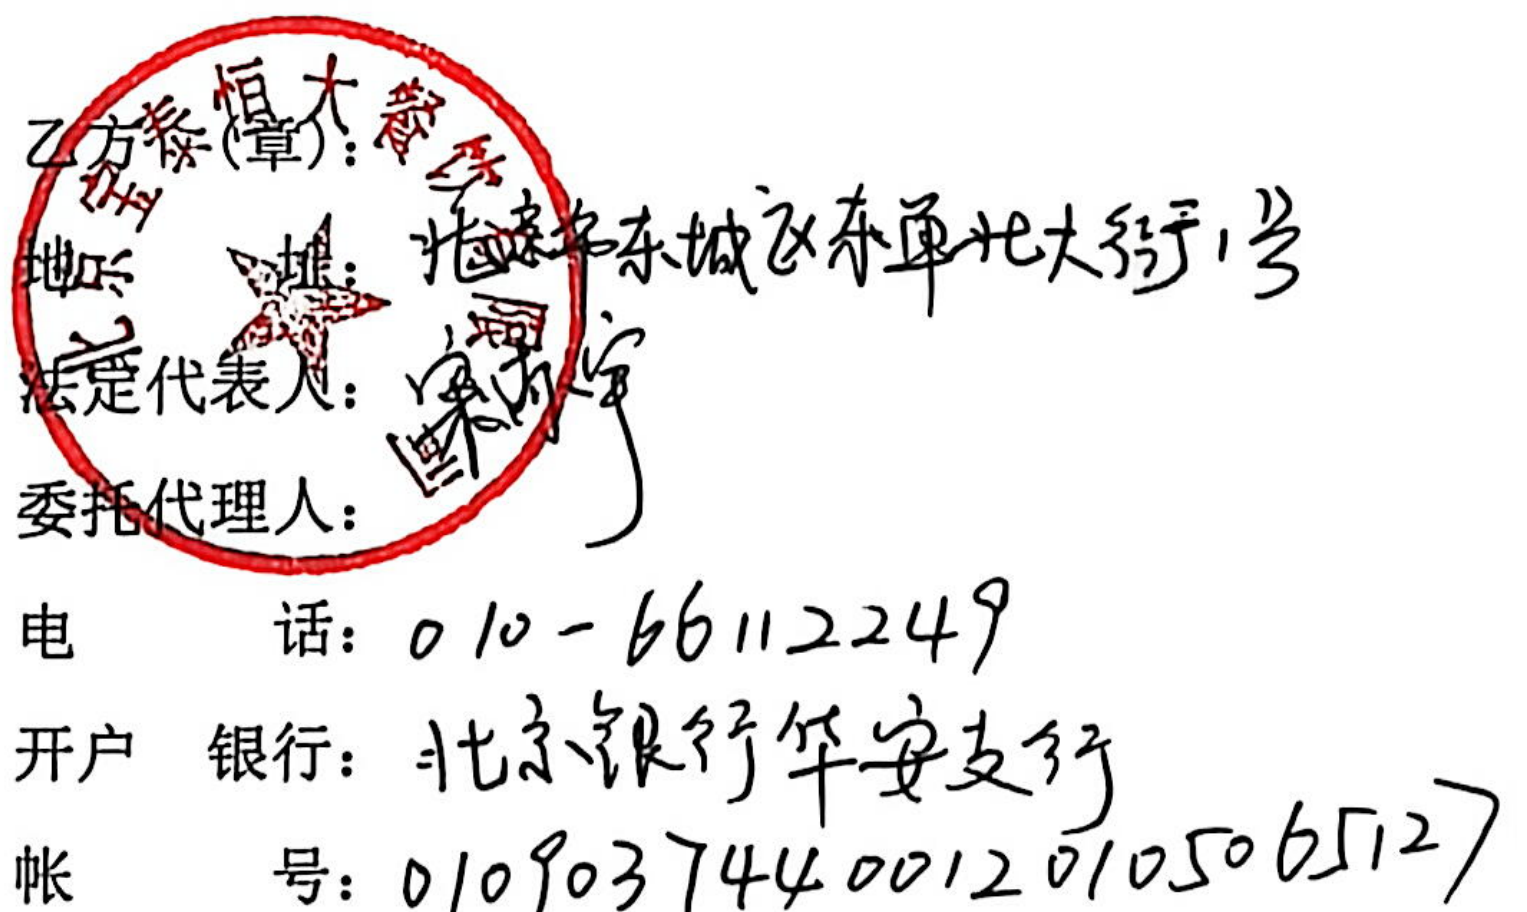 乙方（章）：
北京宝泰恒大餐饮
地 址：北京市东城区东单北大街1号
法定代表人：
委托代理人：
电 话：010-66112249
开户 银行：北京银行华安支行
帐 号：01090374400120105065127